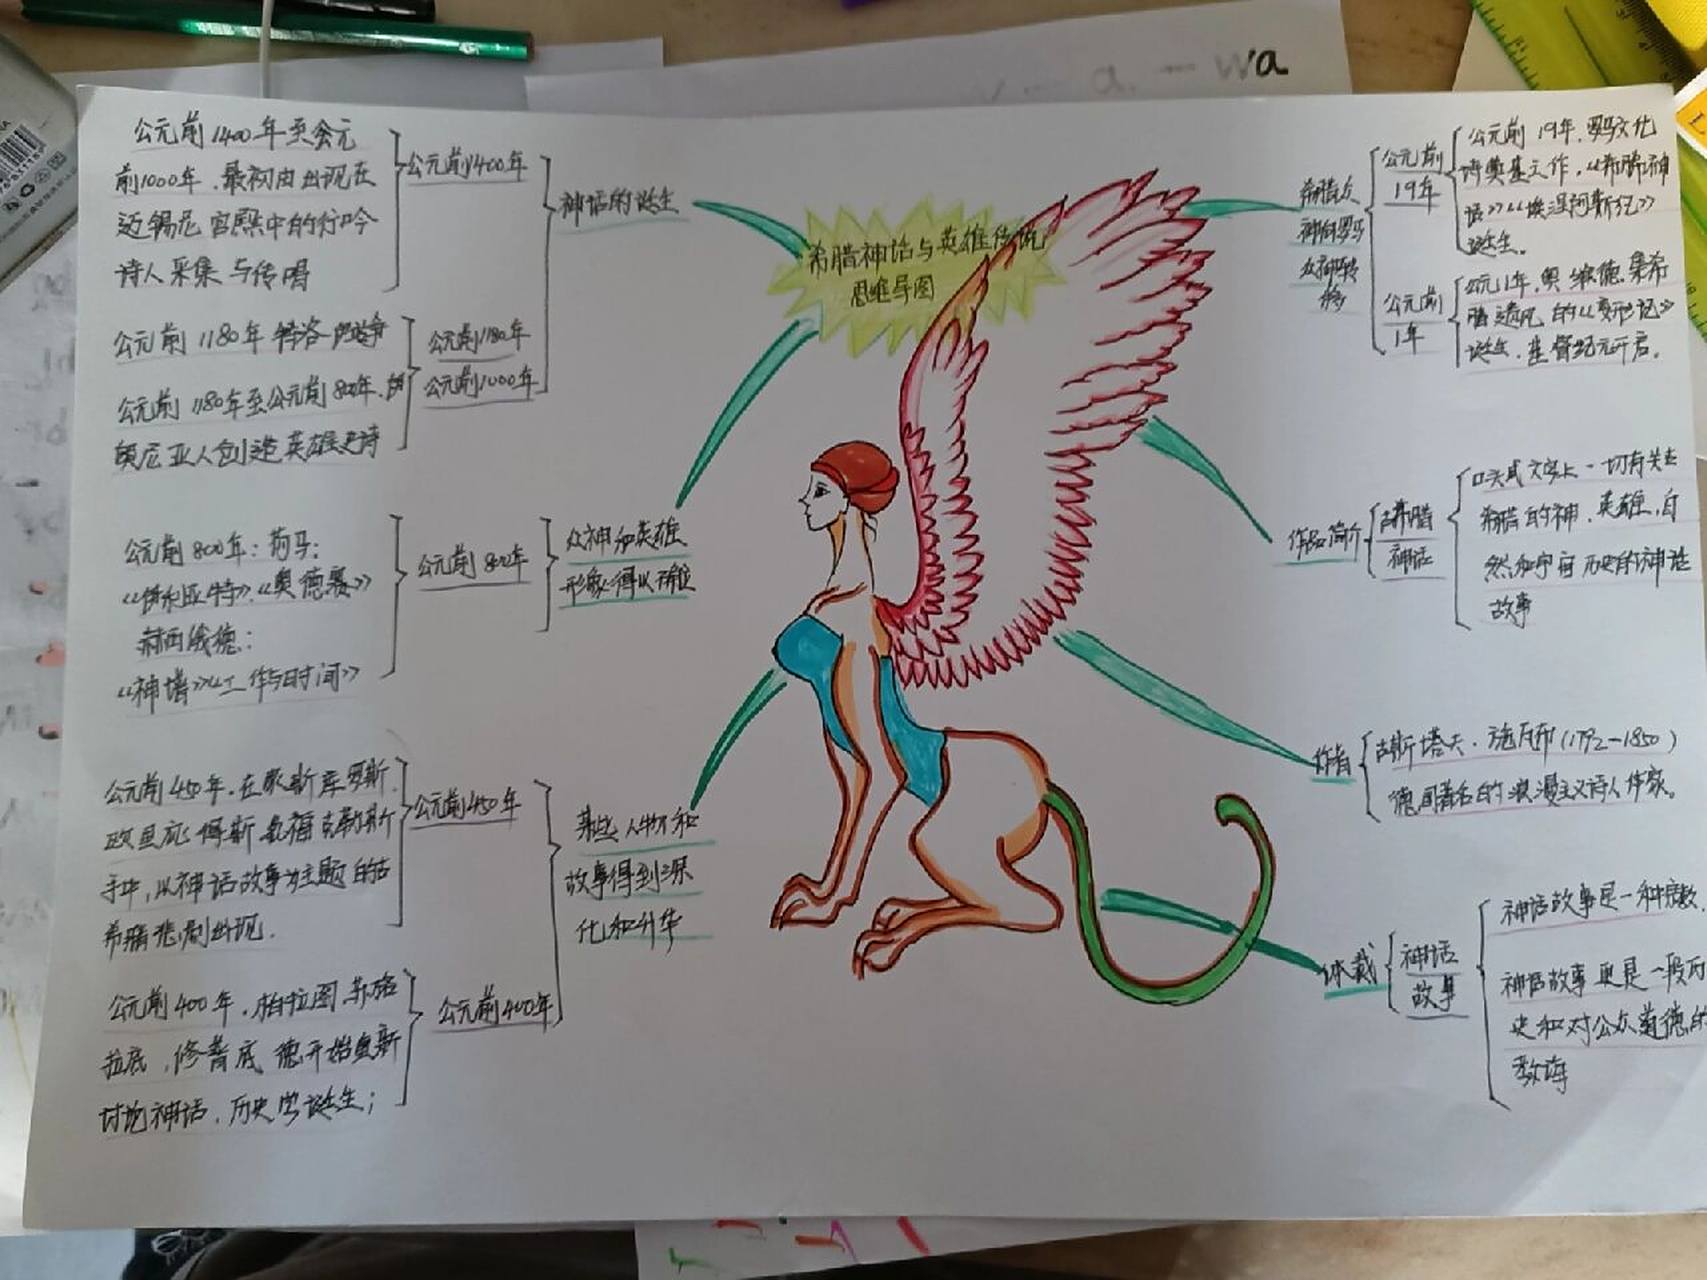 希腊神话与英雄传说
思维导图
神话的诞生
公元前1400年
公元前1400年至公元
前1000年，最初由出现在
迈锡尼宫殿中的行吟
诗人采集与传唱
公元前1180年
公元前1000年
公元前1180年特洛伊战争
公元前1180年至公元前800年，
奥尼亚人创造英雄史诗
众神和英雄
形象得以
公元前800年
公元前800年：荷马：
《伊利亚特》《奥德赛》
赫西俄德：
《神谱》《工作与时间》
某些人物和
故事得到深
化和升华
公元前450年
公元前450年，在埃斯库罗斯，
欧里庇得斯，索福克勒斯
手中，以神话故事为主题的古
希腊悲剧出现。
公元前400年
公元前400年，柏拉图，苏格
拉底，修昔底德开始重新
讨论神话，历史学诞生；
希腊众
神向罗马
众神转
移
公元前
19年
公元前19年，罗马文化
诗奠基之作，《希腊神
话》《埃涅阿斯纪》
诞生。
公元前
1年
公元1年，奥维德，集希
腊遗风的《变形记》
诞生，基督纪元开启。
作品简介
古希腊
神话
口头或文字上一切有关古
希腊的神、英雄、自
然和宇宙历史的神话
故事
作者
古斯塔夫·施瓦布(1792—1850)
德国著名的浪漫主义诗人作家。
体裁
神话
故事
神话故事是一种
神话故事更是一段历
史和对公众道德的
教诲
wa